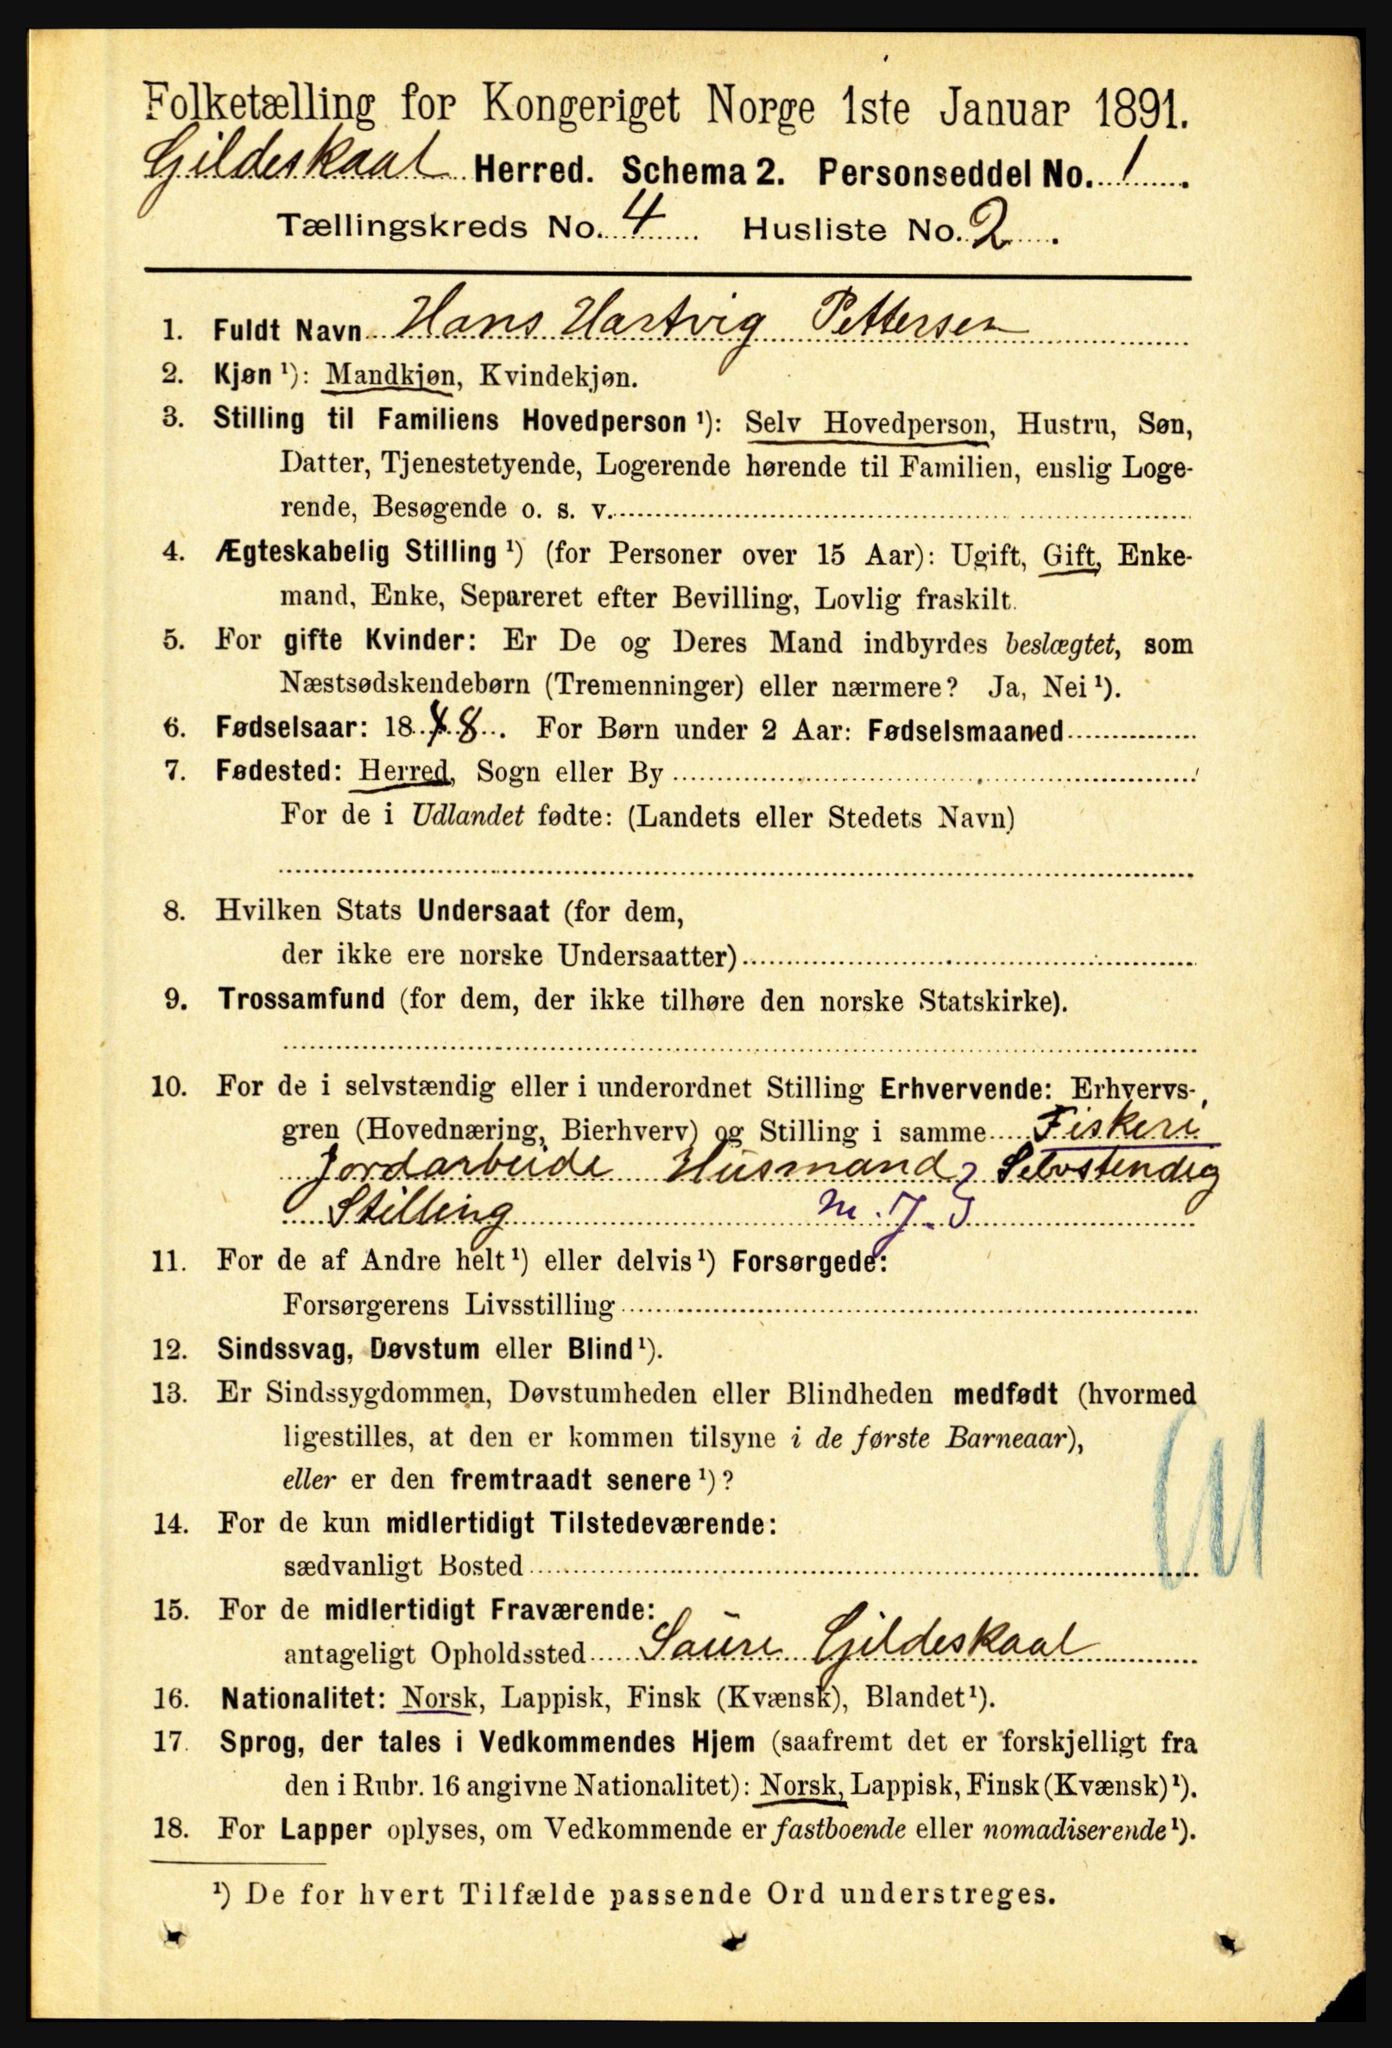 Folketælling for Kongeriget Norge 1ste Januar 1891.
Gildeskaal Herred. Schema 2. Personseddel No. 1.
Tællingskreds No. 4 Husliste No. 2.
1. Fuldt Navn Hans Hartvig Pettersen
2. Kjøn ¹): Mandkjøn, Kvindekjøn.
3. Stilling til Familiens Hovedperson ¹): Selv Hovedperson, Hustru, Søn,
Datter, Tjenestetyende, Logerende hørende til Familien, enslig Loge-
rende, Besøgende o. s. v.
4. Ægteskabelig Stilling ¹) (for Personer over 15 Aar): Ugift, Gift, Enke-
mand, Enke, Separeret efter Bevilling, Lovlig fraskilt.
5. For gifte Kvinder: Er De og Deres Mand indbyrdes beslægtet, som
Næstsødskendebørn (Tremenninger) eller nærmere? Ja, Nei ¹).
6. Fødselsaar: 1848. For Børn under 2 Aar: Fødselsmaaned
7. Fødested: Herred, Sogn eller By
For de i Udlandet fødte: (Landets eller Stedets Navn)
8. Hvilken Stats Undersaat (for dem,
der ikke ere norske Undersaatter)
9. Trossamfund (for dem, der ikke tilhøre den norske Statskirke).
10. For de i selvstændig eller i underordnet Stilling Erhvervende: Erhvervs-
gren (Hovednæring, Bierhverv) og Stilling i samme Fiskeri
Jordarbeide Husmand Selvstendig
Stilling m. J.
11. For de af Andre helt ¹) eller delvis ¹) Forsørgede:
Forsørgerens Livsstilling
12. Sindssvag, Døvstum eller Blind ¹).
13. Er Sindssygdommen, Døvstumheden eller Blindheden medfødt (hvormed
ligestilles, at den er kommen tilsyne i de første Barneaar),
eller er den fremtraadt senere ¹)?
14. For de kun midlertidigt Tilstedeværende:
sædvanligt Bosted
15. For de midlertidigt Fraværende:
antageligt Opholdssted Saure Gildeskaal
16. Nationalitet: Norsk, Lappisk, Finsk (Kvænsk), Blandet ¹).
17. Sprog, der tales i Vedkommendes Hjem (saafremt det er forskjelligt fra
den i Rubr. 16 angivne Nationalitet): Norsk, Lappisk, Finsk (Kvænsk) ¹).
18. For Lapper oplyses, om Vedkommende er fastboende eller nomadiserende ¹).
¹) De for hvert Tilfælde passende Ord understreges.